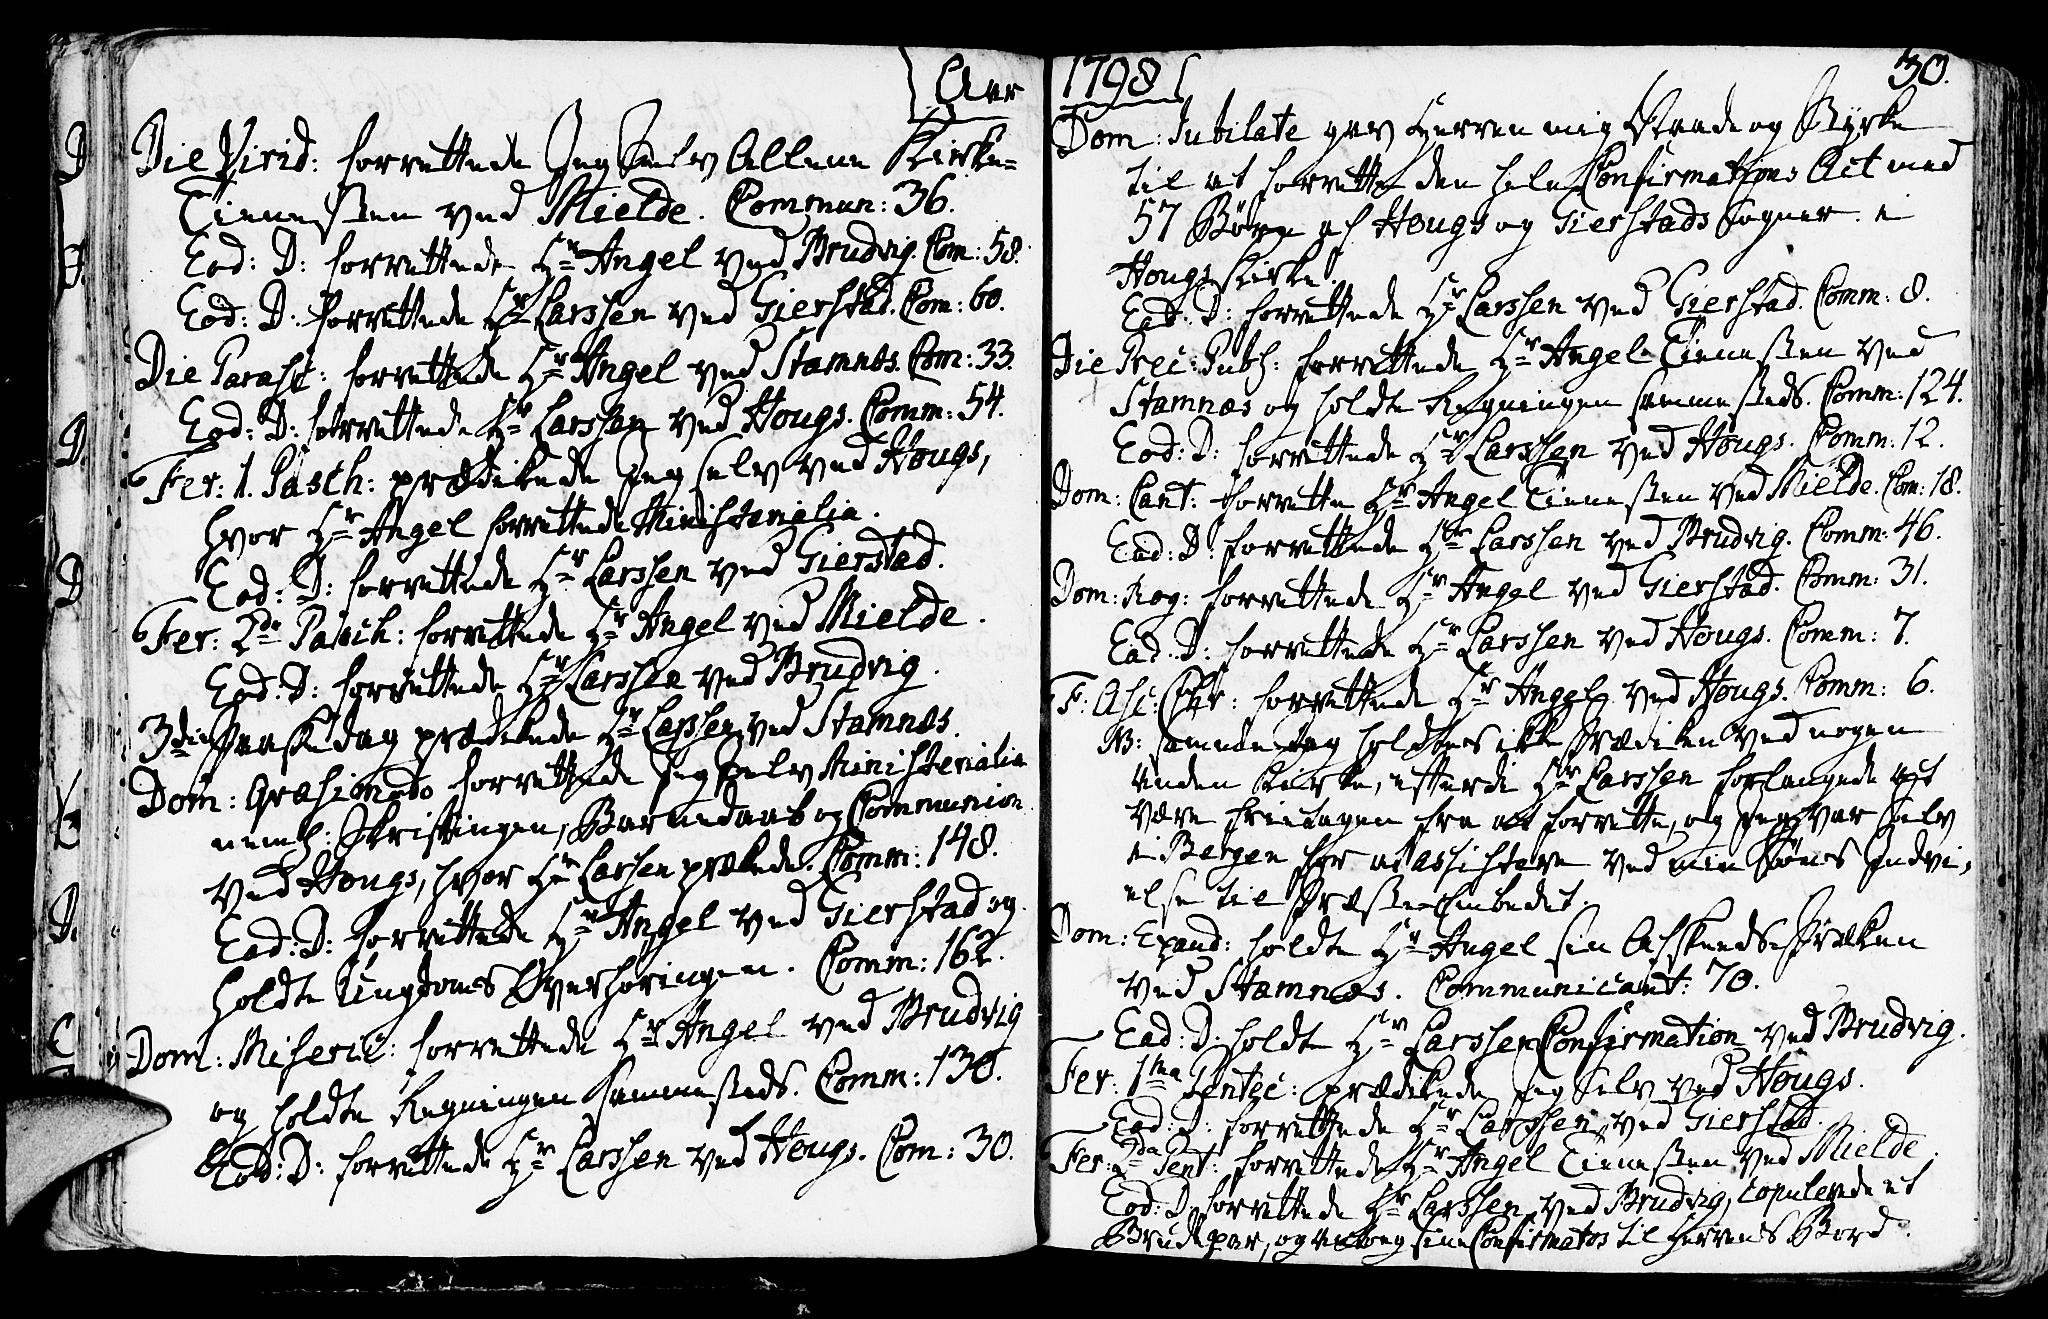 Aar
Die Virid: forrettede Jeg Selv Allene Kirke-
Tienesten ved Mielde. Commun: 36.
Eod: D: forrettede Hr Angel ved Brudvig. Com: 58.
Eod: D: forrettede Hr Larssen ved Gierstad. Com: 60.
Die Parasc: forrettede Hr Angel ved Stamnes. Com: 33.
Eod: D: forrettede Hr Larssen ved Hougs. Comm: 54.
Fer: 1. Pasch: prædikede Jeg selv ved Hougs,
hvor Hr Angel forrettede Ministerialia.
Eod: D: forrettede Hr Larssen ved Gierstad.
Fer: 2da Pasch: forrettede Hr Angel ved Mielde.
Eod: D: forrettede Hr Larssen ved Brudvig.
3die Paaskedag prædikede Hr Larssen ved Stamnæs.
Dom: Qvasimodo forrettede Jeg selv Ministerialia
neml: Skriftingen, Barnedaab og Communion
ved Hougs, hvor Hr Larsen prækede. Comm: 148.
Eod: D: forrettede Hr Angel ved Gierstad og
holdte Ungdoms Overhøringen. Comm: 162.
Dom: Miseric: forrettede Hr Angel ved Brudvig
og holdte Regningen sammesteds. Comm: 130.
Eod: D: forrettede Hr Larssen ved Hougs. Com: 30.
1798
30.
Dom: Jubilate gav Herren mig Naade og Styrke
til at forrette den hele Confirmations Act med
57 Børn af Hougs og Gierstads Sogner i
Hougs Kirke.
Eod: D: forrettede Hr Larssen ved Gierstad. Comm: 8.
Die Prec: Publ: forrettede Hr Angel Tienesten ved
Stamnæs og holdte Regningen sammesteds. Comm: 124.
Eod: D: forrettede Hr Larssen ved Hougs. Comm: 12.
Dom: Cant: forrette Hr Angel Tienesten ved Mielde. Com: 18.
Eod: D: forrettede Hr Larssen ved Brudvig. Comm: 46.
Dom: Rog: forrettede Hr Angel ved Gierstad. Comm: 31.
Eod: D: forrettede Hr Larssen ved Hougs. Comm: 7.
F: Asc: Chr: forrettede Hr Angel ved Hougs. Comm: 6.
NB: samme dag holdtes ikke Prædiken ved nogen
anden Kirke, efterdi Hr Larssen forlangede at
være fritagen fra at forrette, og Jeg var selv
i Bergen for at assistere ved min Søns Indvi-
else til Præste Embedet.
Dom: Exaud: holdte Hr Angel sin Afskeeds Præken
ved Stamnæs. Communicant: 70.
Eod: D: holdte Hr Larssen Confirmation ved Brudvig.
Fer: 1ma Pentec: prædikede Jeg selv ved Hougs.
Eod: D: forrettede Hr Larssen ved Gierstad.
Fer: 2da Pent: forrettede Hr Angel Tienesten ved Mielde.
Eod: D forrettede Hr Larssen ved Brudvig, copulerede et
Brudepar, og antog sine Confirmatos til Herrens Bord.